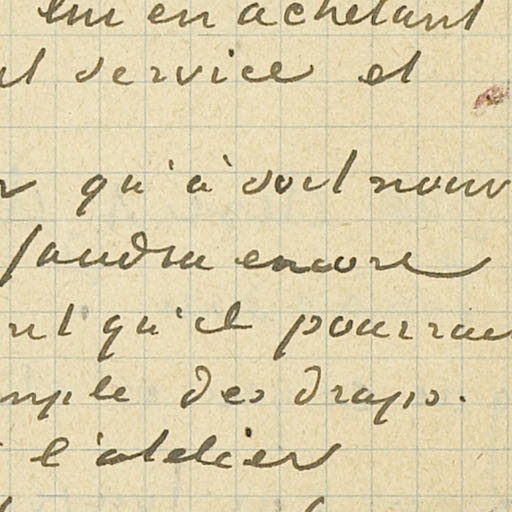 lui en achetant
service et
qu'à sort nouv
faudra encore
qu'il pourrai
mple des draps.
l'atelier